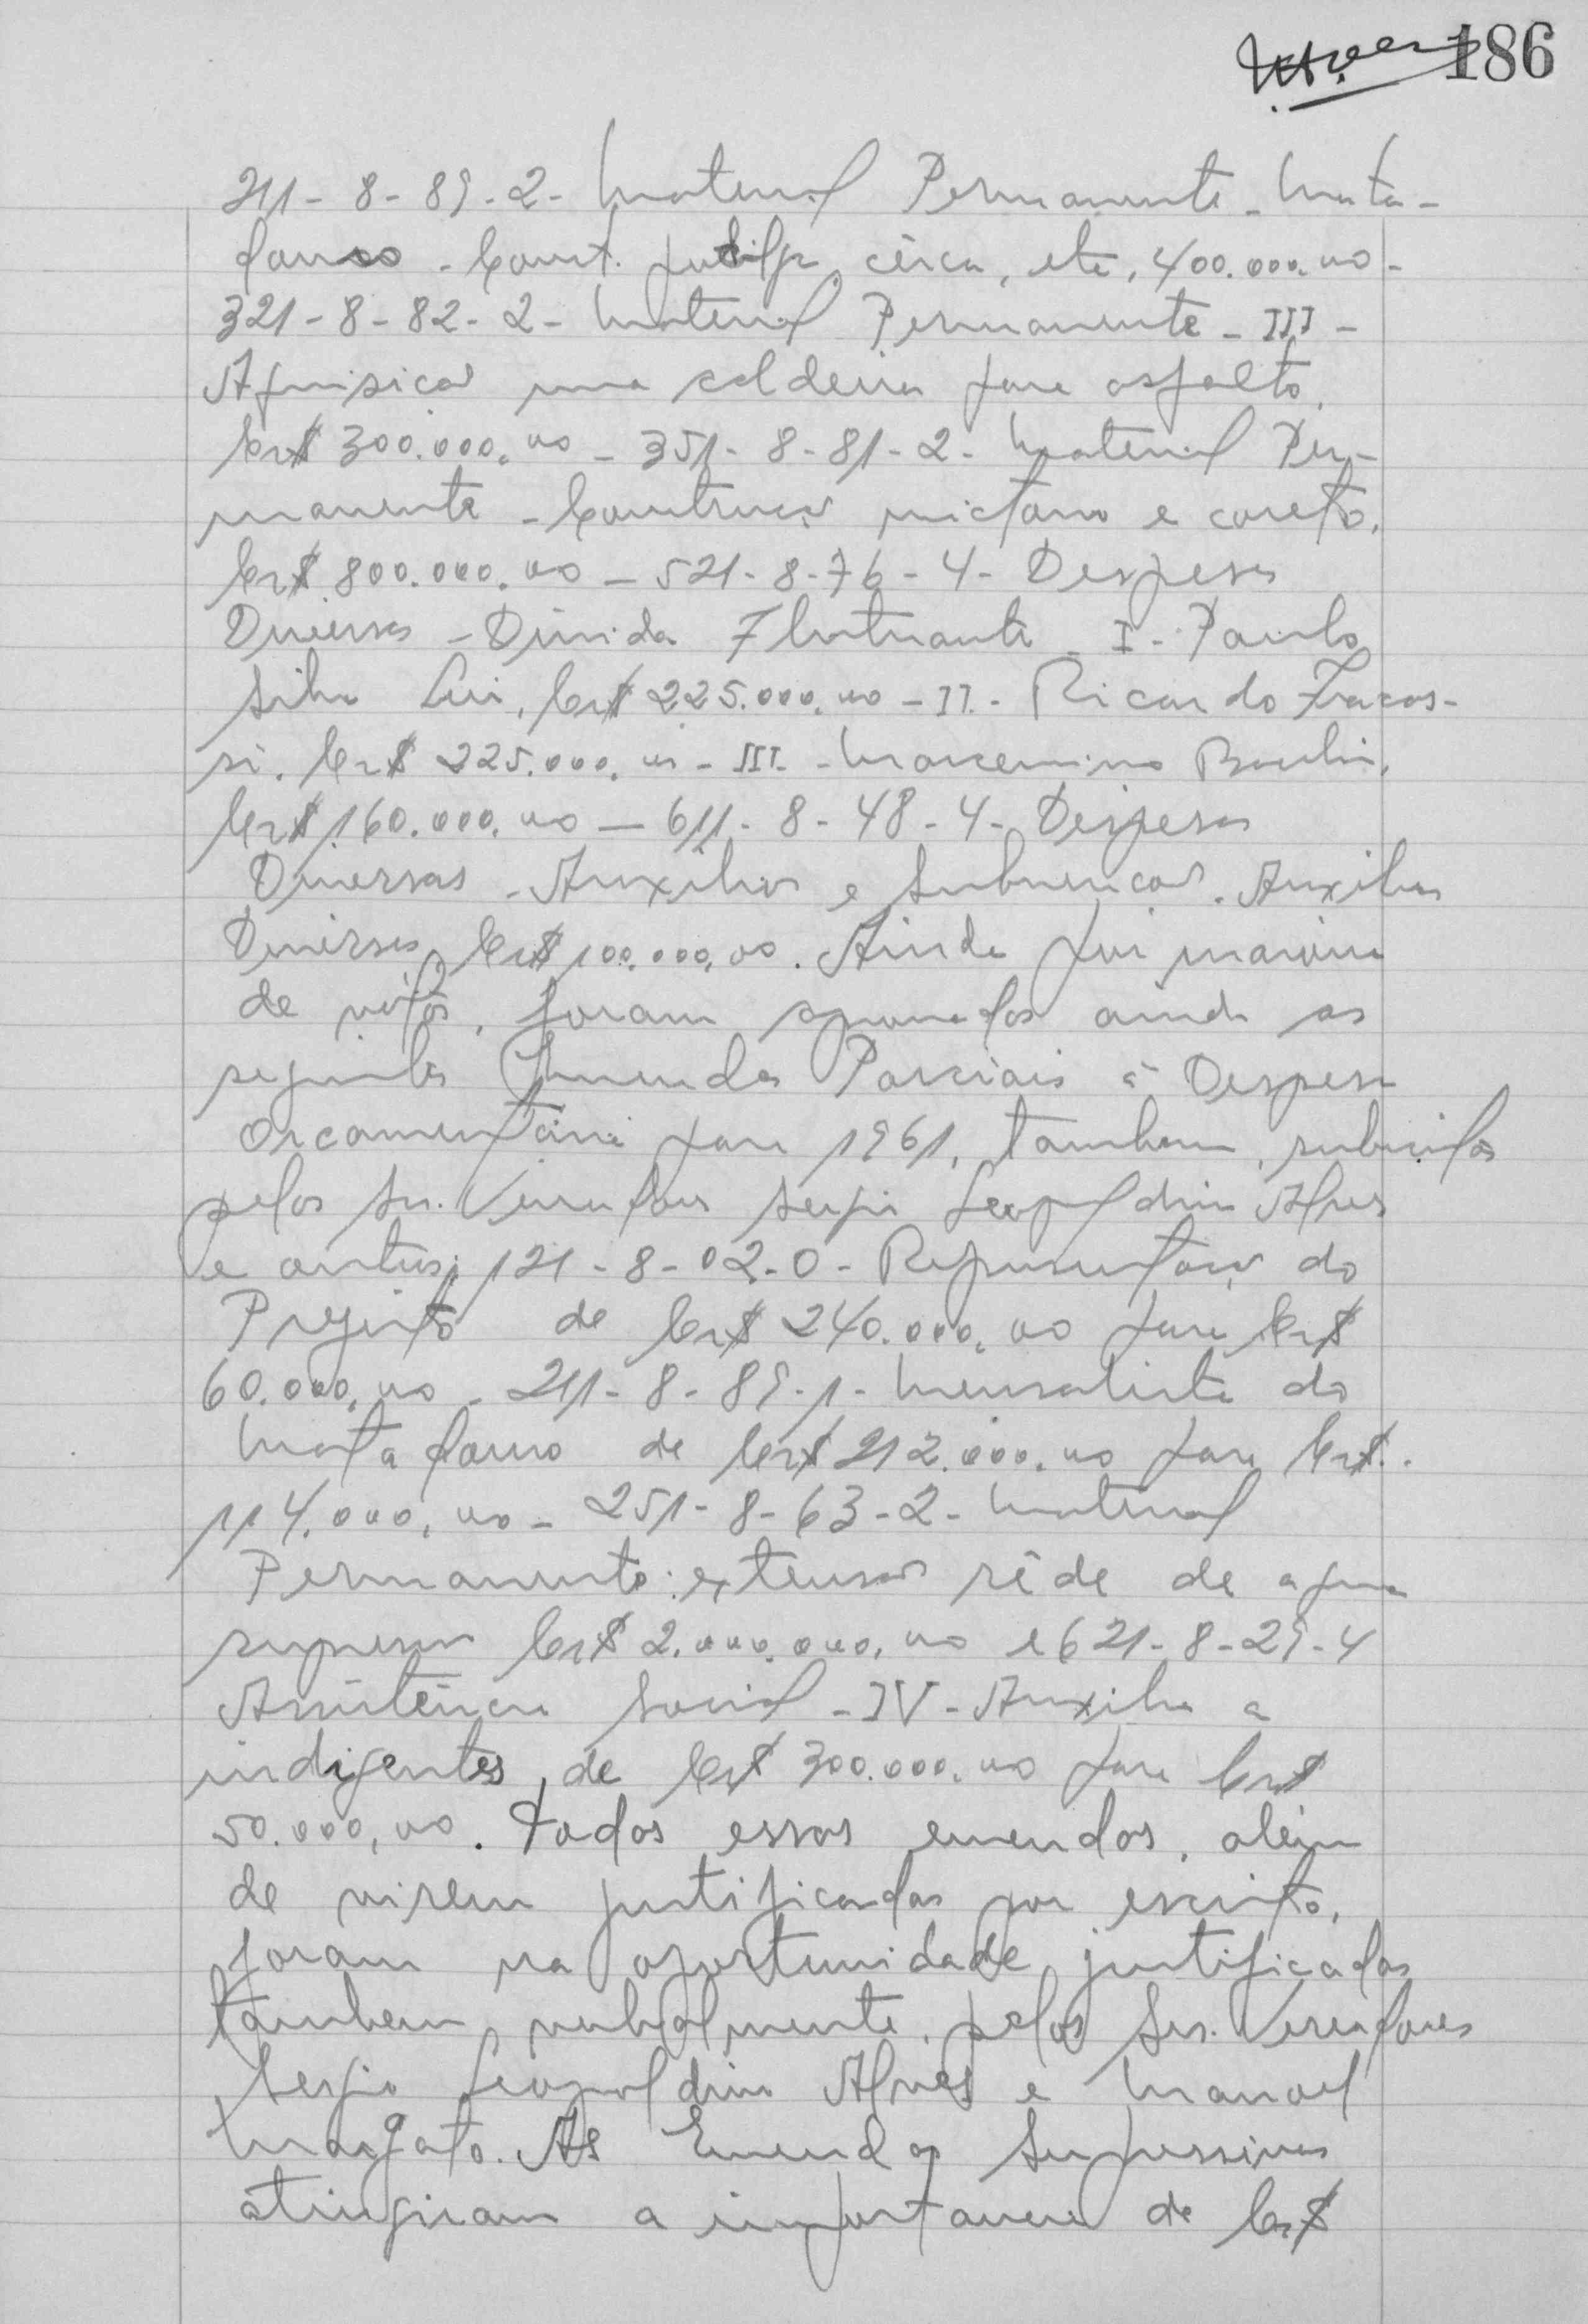 186
211-8-89-2- Material Permanente - Mata-
douro - Const. cêrca, etc, 400.000,00 -
321-8-82-2- Material Permanente - III -
Aquisição uma caldeira para asfalto.
Cr$ 300.000,00 - 351-8-81-2- Material Per-
manente - Construção mictorio e coreto,
Cr$ 800.000,00 - 521-8-76-4- Despesas
Diversas - Divida Flutuante - I - Paulo
Silva Cr$ 225.000,00 - II - Ricardo Fracas-
si. Cr$ 225.000,00 - III - Marcemino
Cr$ 160.000,00 - 611-8-48-4- Despesas
Diversas - Auxilios e Subvenções. Auxilios
Diversos, Cr$ 100.000,00. Ainda por maioria
de vótos, foram aprovados ainda as
seguintes Emendas Parciais á Despesa
Orcamentária para 1961, tambem, subscritas
pelos Srs. Vereadores Sergio Leopoldino Alves
e outros; 121-8-02-0- Representação do
Prefeito de Cr$ 240.000,00 para Cr$
60.000,00 - 211-8-89-1- Mensalista do
Matadouro de Cr$ 212.000,00 para Cr$.
114.000,00 - 251-8-63-2- Material
Permanente: extensão rêde de agua
supressão Cr$ 2.000.000,00 e 621-8-29-4
Assistência Social - IV - Auxilio a
indigentes, de Cr$ 300.000,00 para Cr$
50.000,00. Todas essas emendas, além
de virem justificadas por escrito,
foram na oportunidade justificadas
tambem verbalmente, pelos Srs. Vereadores
Sergio Leopoldino Alves e Manoel
Morgato. As Emendas Supressivas
atingiram a importancia de Cr$